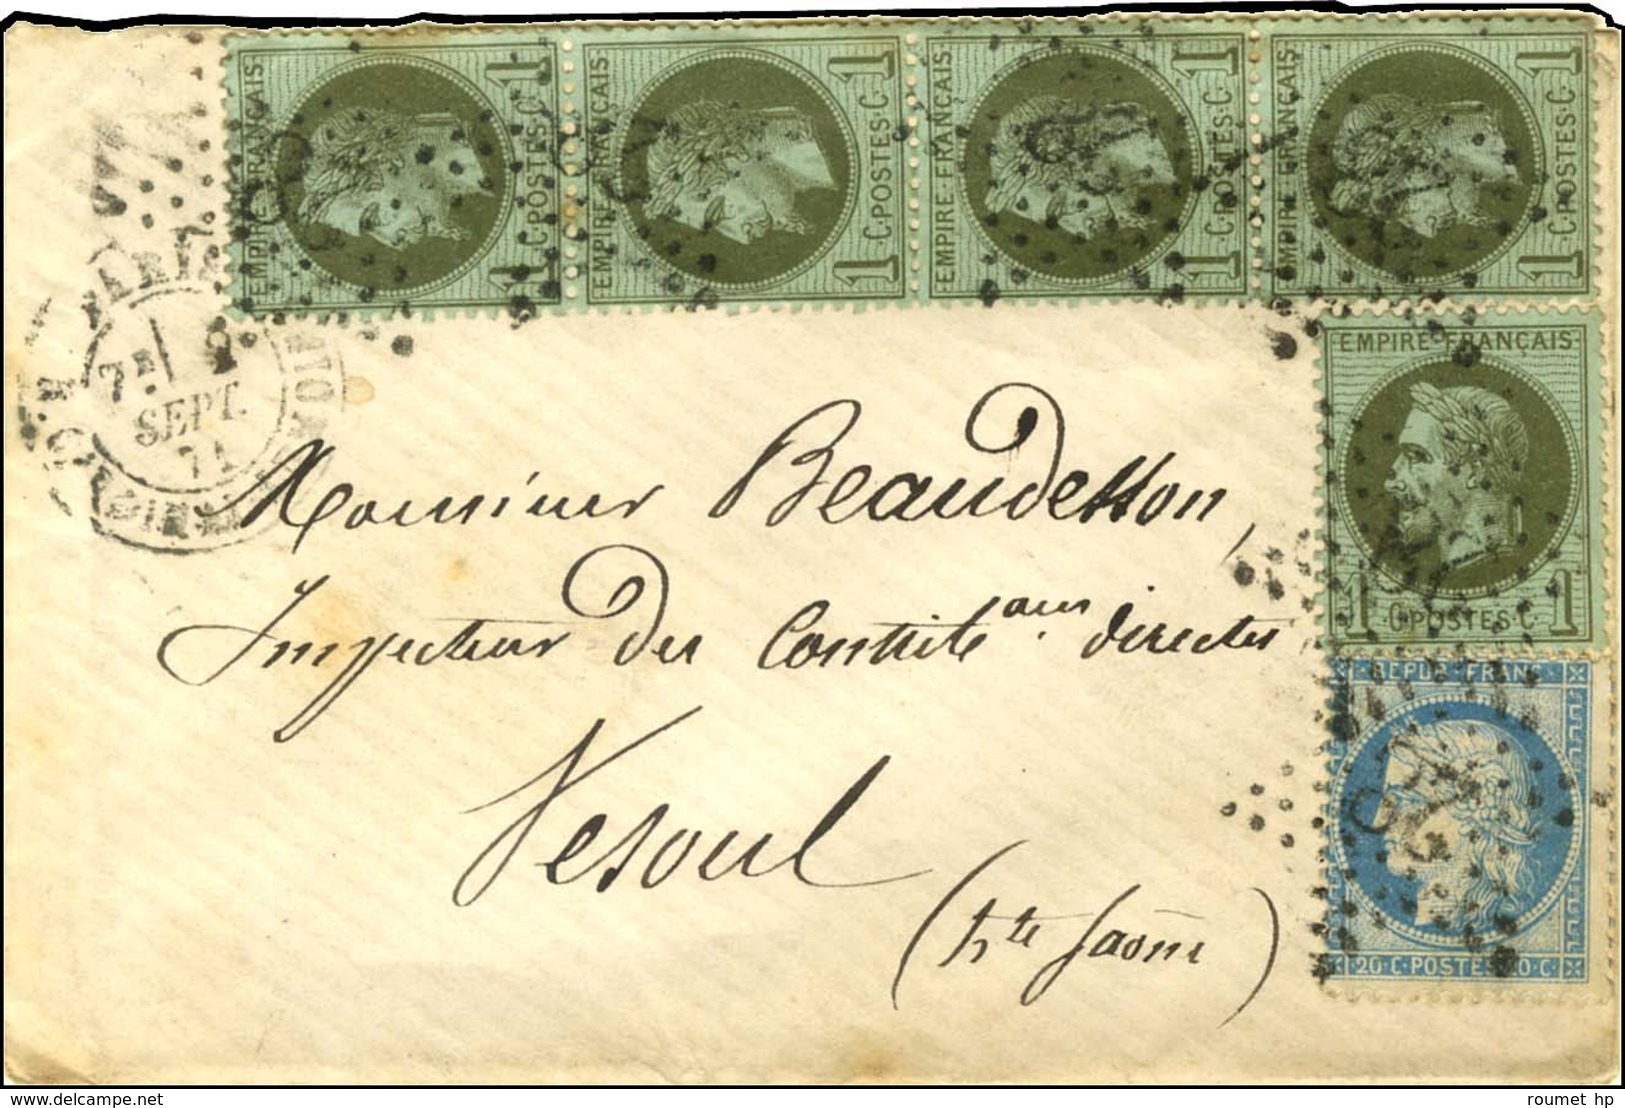 EMPIRE·FRANÇAIS 1·C·POSTES·C·1
EMPIRE·FRANÇAIS 1·C·POSTES·C·1
EMPIRE·FRANÇAIS 1·C·POSTES·C·1
EMPIRE·FRANÇAIS 1·C·POSTES·C·1
PARIS
7E
SEPT.
71
EMPIRE·FRANÇAIS
1·C·POSTES·C·1
Monsieur Beaudesson,
Inspecteur des Contrib^ons directes
Vesoul
(h^te Saône)
REPUB·FRANC
20·C·POSTES·20·C·
www.delcampe.net
roumet hp